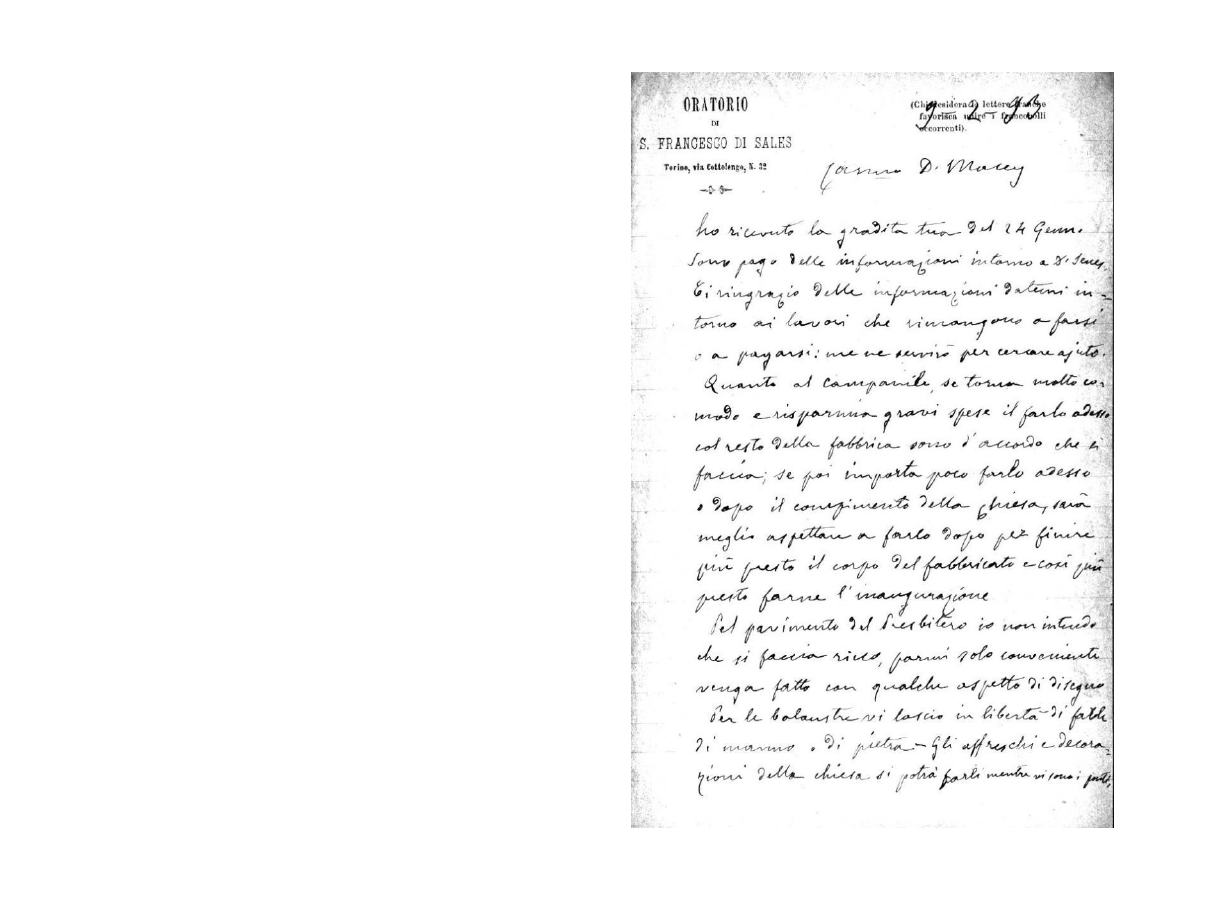 ORATORIO
DI
S. FRANCESCO DI SALES
Torino, via Cottolengo, N. 32
(Chi desidera le lettere franche
favorisca unire i francobolli
occorrenti).
9-2-93
Carissimo D. Macey
ho ricevuto la gradita tua del 24 Genn.
Sono pago delle informazioni intorno a D.
Ti ringrazio delle informazioni datemi in-
torno ai lavori che rimangono a farsi
o a pagarsi: me ne servirò per cercare ajuto.
Quanto al campanile, se torna molto co-
modo e risparmia gravi spese il farlo adesso
col resto della fabbrica sono d'accordo che si
faccia; se poi importa poco farlo adesso
o dopo il compimento della chiesa, sarà
meglio aspettare a farlo dopo per finire
più presto il corpo del fabbricato e così più
presto farne l'inaugurazione
Pel pavimento del Presbitero io non intendo
che si faccia ricco, parmi solo conveniente
venga fatto con qualche aspetto di disegno
Per le balaustre vi lascio in libertà di farle
di marmo o di pietra - Gli affreschi e decora-
zioni della chiesa si potrà farli mentre vi sono i ponti,